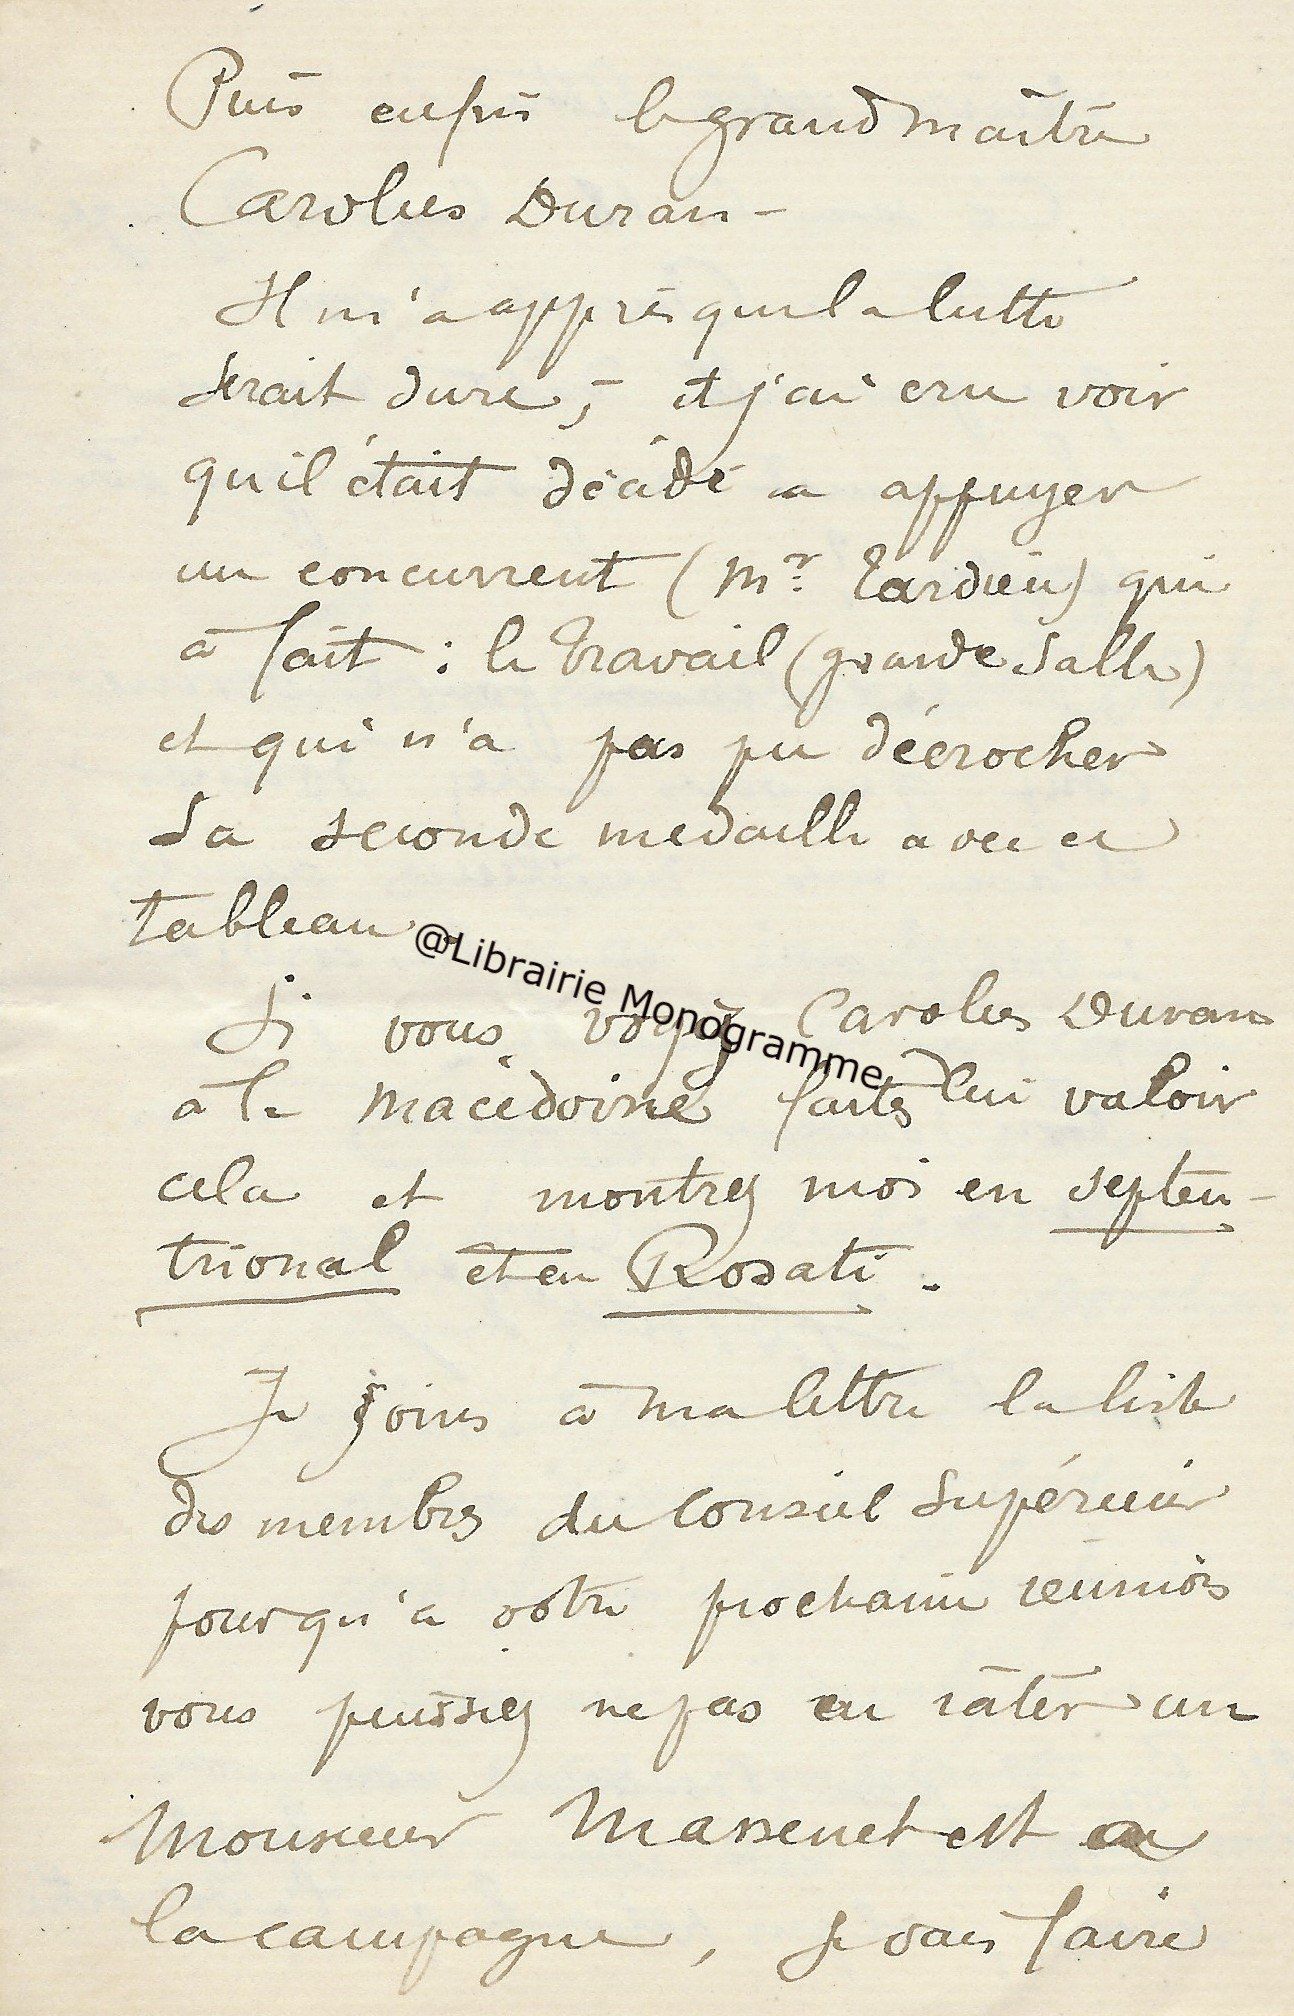 Puis enfin le grand maître
Carolus Duran –
Il m'a appris que la lutte
serait dure, – et j'ai cru voir
qu'il était décidé a appuyer
un concurrent (Mr. Tardieu) qui
à fait : le Travail (grande salle)
et qui n'a pas pu décrocher
sa seconde medaille avec ce
tableau.
@Librairie Monogramme
Si vous voyez Carolus Duran
à la Macédoine faites lui valoir
cela et montrez moi en septen-
trional et en Rosati.
Je joins à ma lettre la liste
des membres du Conseil Supérieur
pour qu'à votre prochaine réunion
vous puissiez ne pas en râter un
Monsieur Massenet est a
la campagne, je vais faire